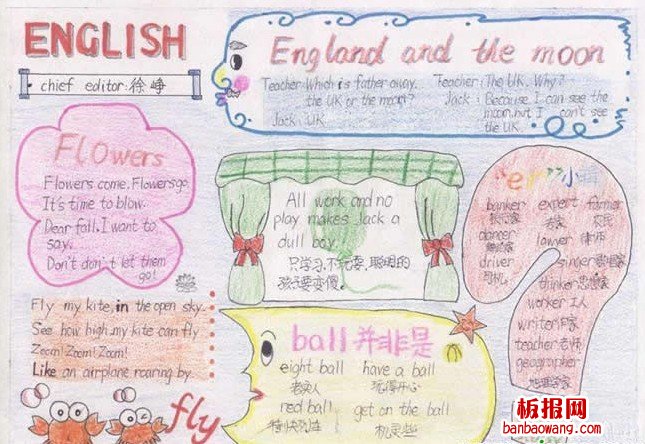 ENGLISH
chief editor:徐峥
England and the moon
Teacher:Which is father away,
the UK or the moon?
Jack: UK.
Teacher: The UK. Why?
Jack: Because. I can see the
moon, but I can't see
the UK.
Flowers
Flowers come, Flowers go.
It's time to blow.
Dear fall, I want to
say.
Don't don't let them
go!
All work and no
play makes Jack a
dull boy.
只学习,不玩耍,聪明的
孩子变傻.
"er"小
banker expert farmer
银行家 专家 农民
dancer lawyer 律师
driver singer
司机
thinker 思想家
worker 工人
writer 作家
teacher 老师
geographer
地理学家
Fly my kite, in the open sky.
See how high my kite can fly
Zoom! Zoom! Zoom!
Like an airplane roaring by.
fly
ball 并非是
eight ball have a ball
老实人 玩得开心
red ball get on the ball
特快列车 机灵些
板报网
www.banbaowang.com